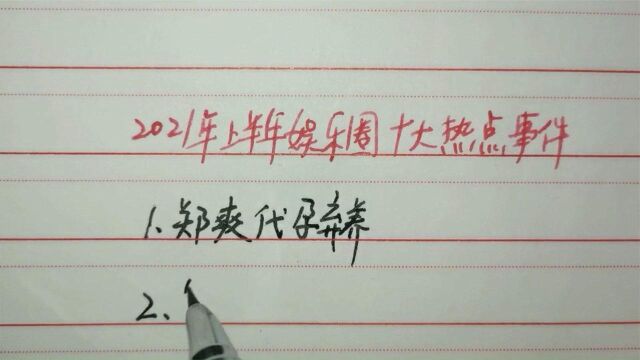 2021年上半年娱乐圈十大热点事件
1、郑爽代孕弃养
2、